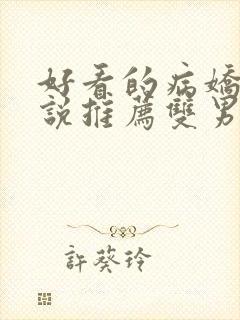 好看的病嬌
說推薦雙男
許葵玲